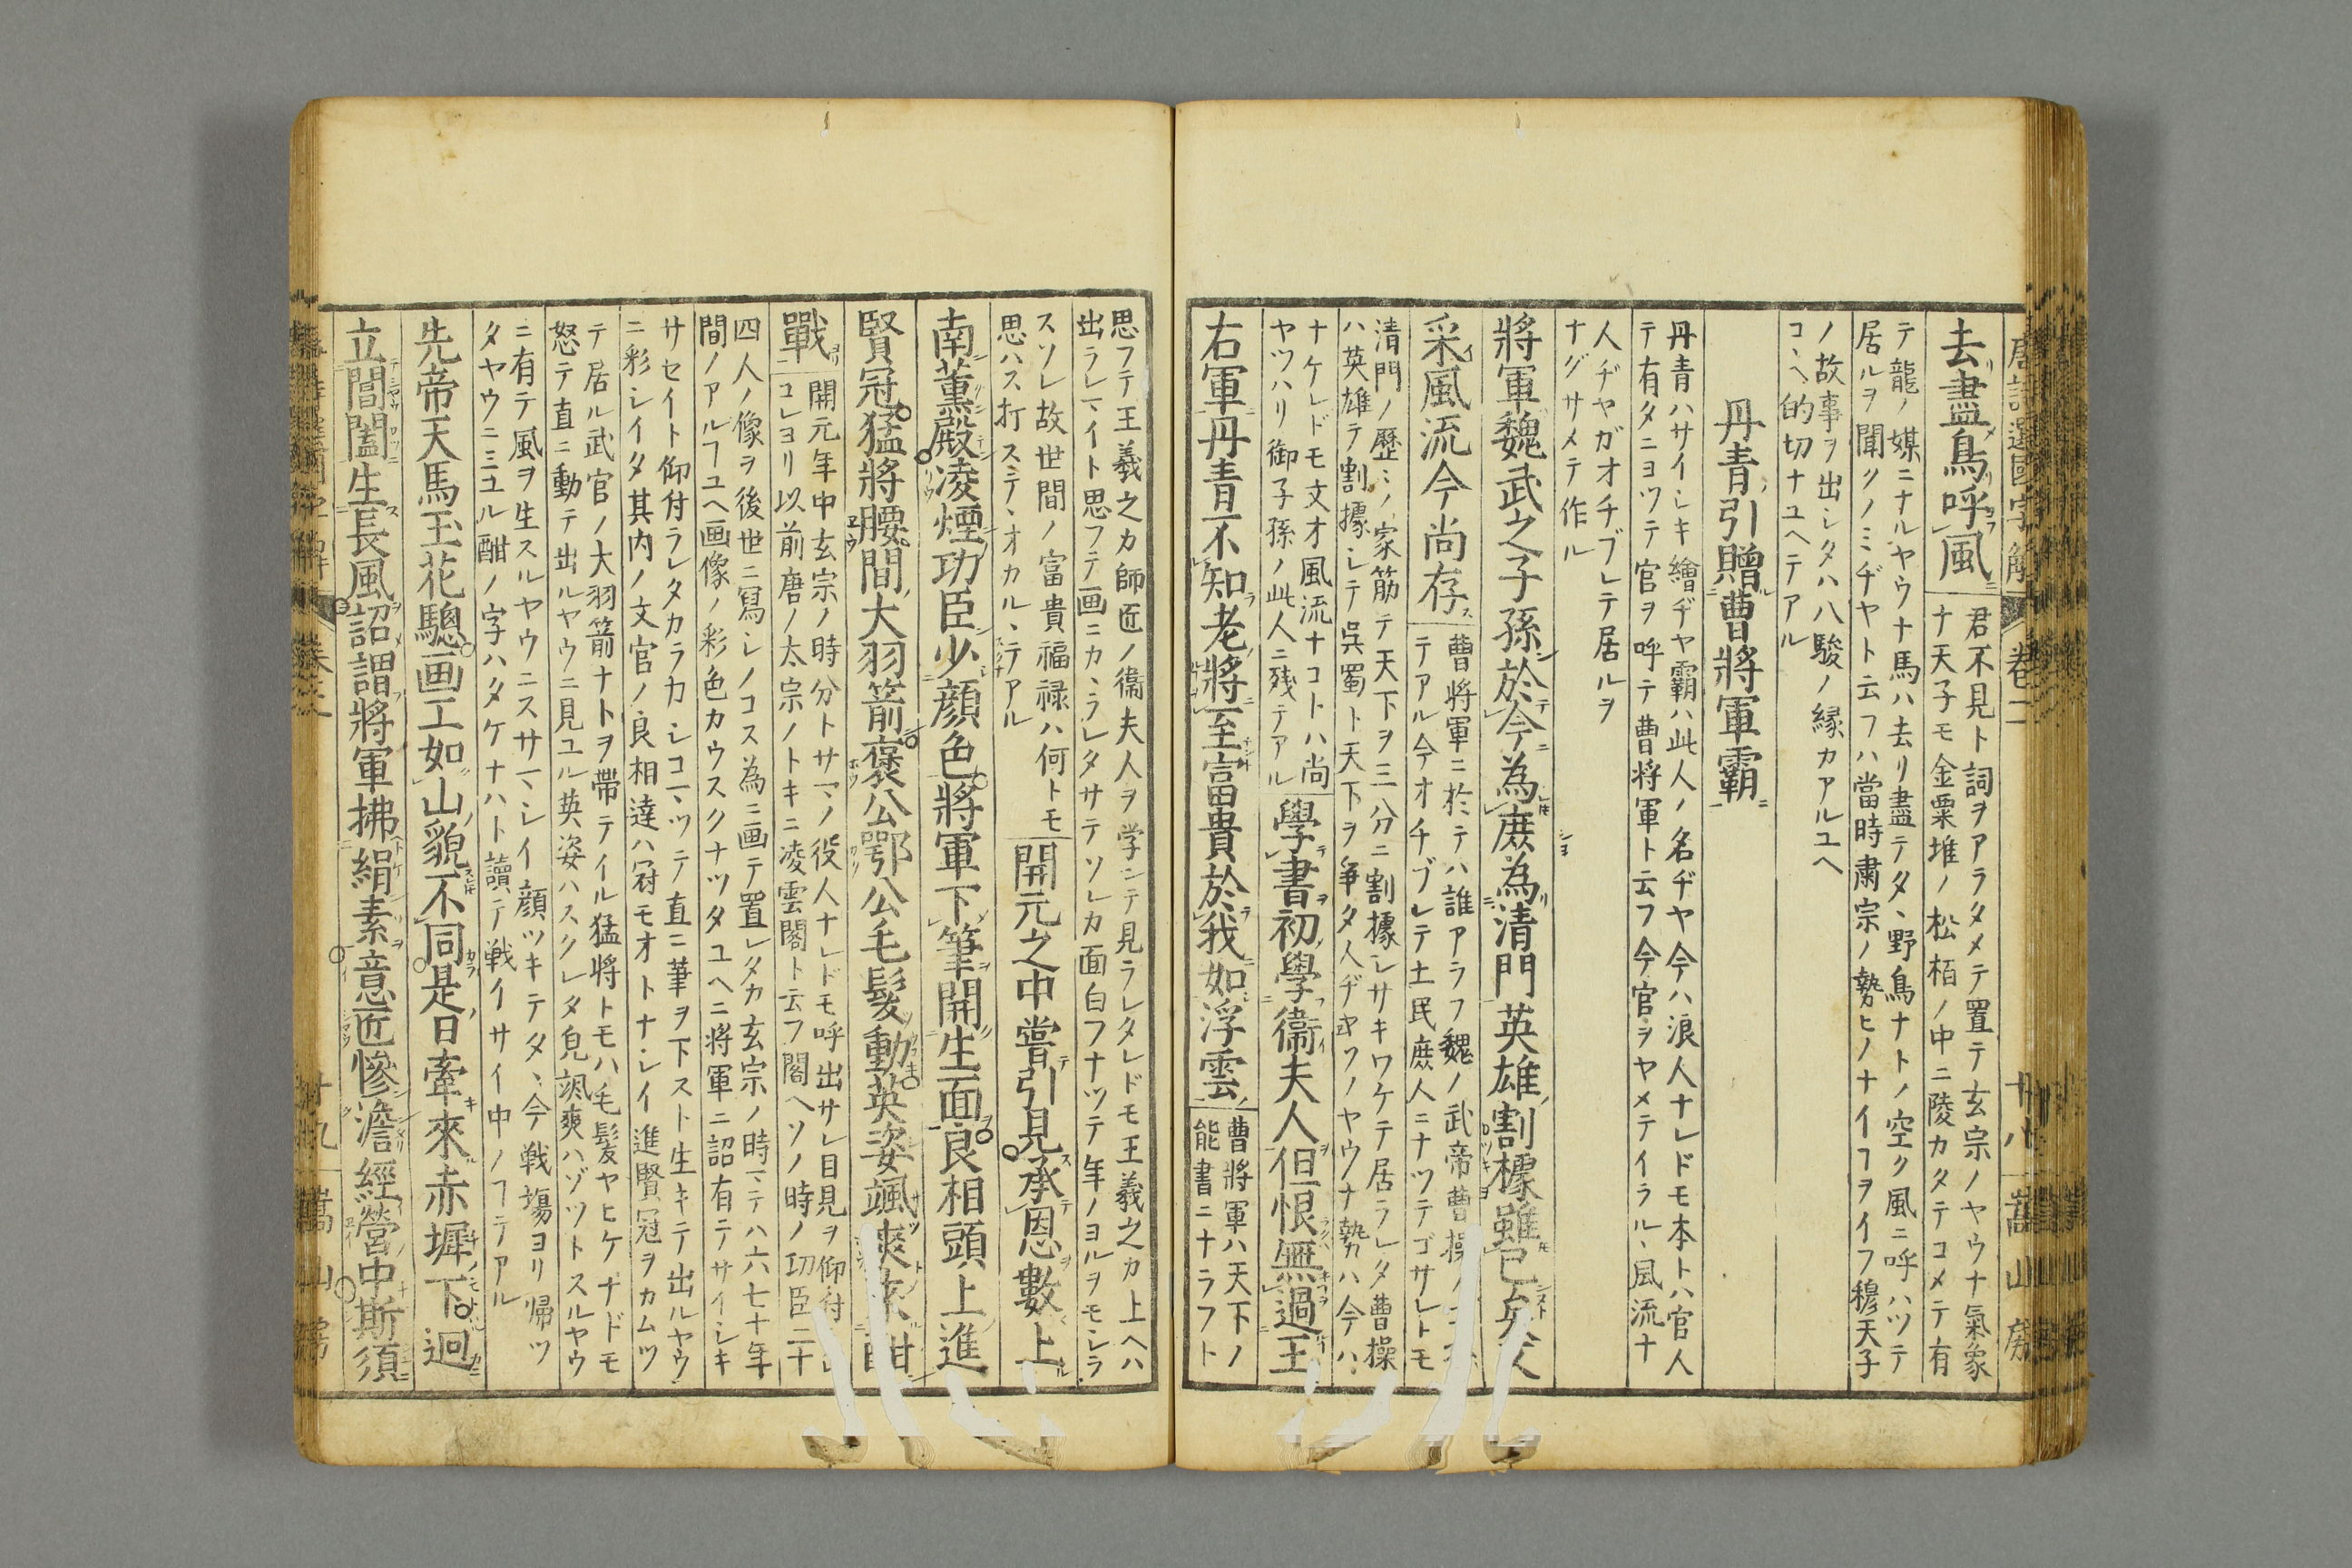 唐詩選國字解 卷二 十八 嵩山房
去盡鳥呼風
君不見ト詞ヲアラタメテ置テ玄宗ノヤウナ氣象
ナ天子モ金粟堆ノ松栢ノ中ニ陵カタテコメテ有
テ龍ノ媒ニナルヤウナ馬ハ去リ盡テタヽ野鳥ナトノ空ク風ニ呼ハツテ
居ルヲ聞クノミヂヤト云フハ當時肅宗ノ勢ヒノナイフヲイフ穆天子
ノ故事ヲ出シタハ八駿ノ縁カアルユヘ
コヽヘ的切ナユヘテアル
丹青引贈曹將軍霸
丹青ハサイシキ繪ヂヤ霸ハ此人ノ名ヂヤ今ハ浪人ナレドモ本トハ官人
テ有タニヨツテ官ヲ呼テ曹将軍ト云フ今官ヲヤメテイラルヽ風流ナ
人ヂヤガオチブレテ居ルヲ
ナグサメテ作ル
將軍魏武之子孫於今為庶為清門英雄割據雖已矣文
采風流今尚存
曹将軍ニ於テハ誰アラフ魏ノ武帝曹操ノ
テアル今オチブレテ土民庶人ニナツテゴサレトモ
清門ノ歴ミノ家筋テ天下ヲ三分ニ割據シサキワケテ居ラレタ曹操
ハ英雄テ割據シテ呉蜀ト天下ヲ爭タ人ヂヤソノヤウナ勢ハ今ハ
ナケレドモ文才風流ナコトハ尚
ヤツハリ御子孫ノ此人ニ殘テアル
學書初學衞夫人但恨無過王
右軍丹青不知老將至富貴於我如浮雲
曹將軍ハ天下ノ
能書ニナラフト
思フテ王羲之カ師匠ノ衞夫人ヲ学ンテ見ラレタレドモ王羲之カ上ヘハ
出ラレマイト思フテ画ニカヽラレタサテソレカ面白フナツテ年ノヨルヲモシラ
スソレ故世間ノ富貴福禄ハ何トモ
思ハス打ステヽオカルヽテアル
開元之中嘗引見承恩數上
南薰殿凌煙功臣少顔色將軍下筆開生面良相頭上進
賢冠猛將腰間大羽箭褒公鄂公毛髮動英姿颯爽來酣
戰
開元年中玄宗ノ時分トサマノ役人ナレドモ呼出サレ目見ヲ仰付
コレヨリ以前唐ノ太宗ノトキニ凌雲閣ト云フ閣ヘソノ時ノ功臣二十
四人ノ像ヲ後世ニ寫シノコス為ニ画テ置レタカ玄宗ノ時マテハ六七十年
間ノアルフユヘ画像ノ彩色カウスクナツタユヘニ将軍ニ詔有テサイシキ
サセイト仰付ラレタカラカシコマツテ直ニ筆ヲ下スト生キテ出ルヤウ
ニ彩シイタ其内ノ文官ノ良相達ハ冠モオトナシイ進賢冠ヲカムツ
テ居ル武官ノ大羽箭ナトヲ帶テイル猛将トモハ毛髮ヤヒケナドモ
怒テ直ニ動テ出ルヤウニ見ユル英姿ハスクレタ皃颯爽ハゾツトスルヤウ
ニ有テ風ヲ生スルヤウニスサマシイ顔ツキテタヽ今戦場ヨリ帰ツ
タヤウニミユル酣ノ字ハタケナハト讀テ戦イサイ中ノフテアル
先帝天馬玉花驄画工如山貌不同是日牽來赤墀下迥
立閶闔生長風詔謂將軍拂絹素意匠慘澹經營中斯須
卷二 十九 嵩山房